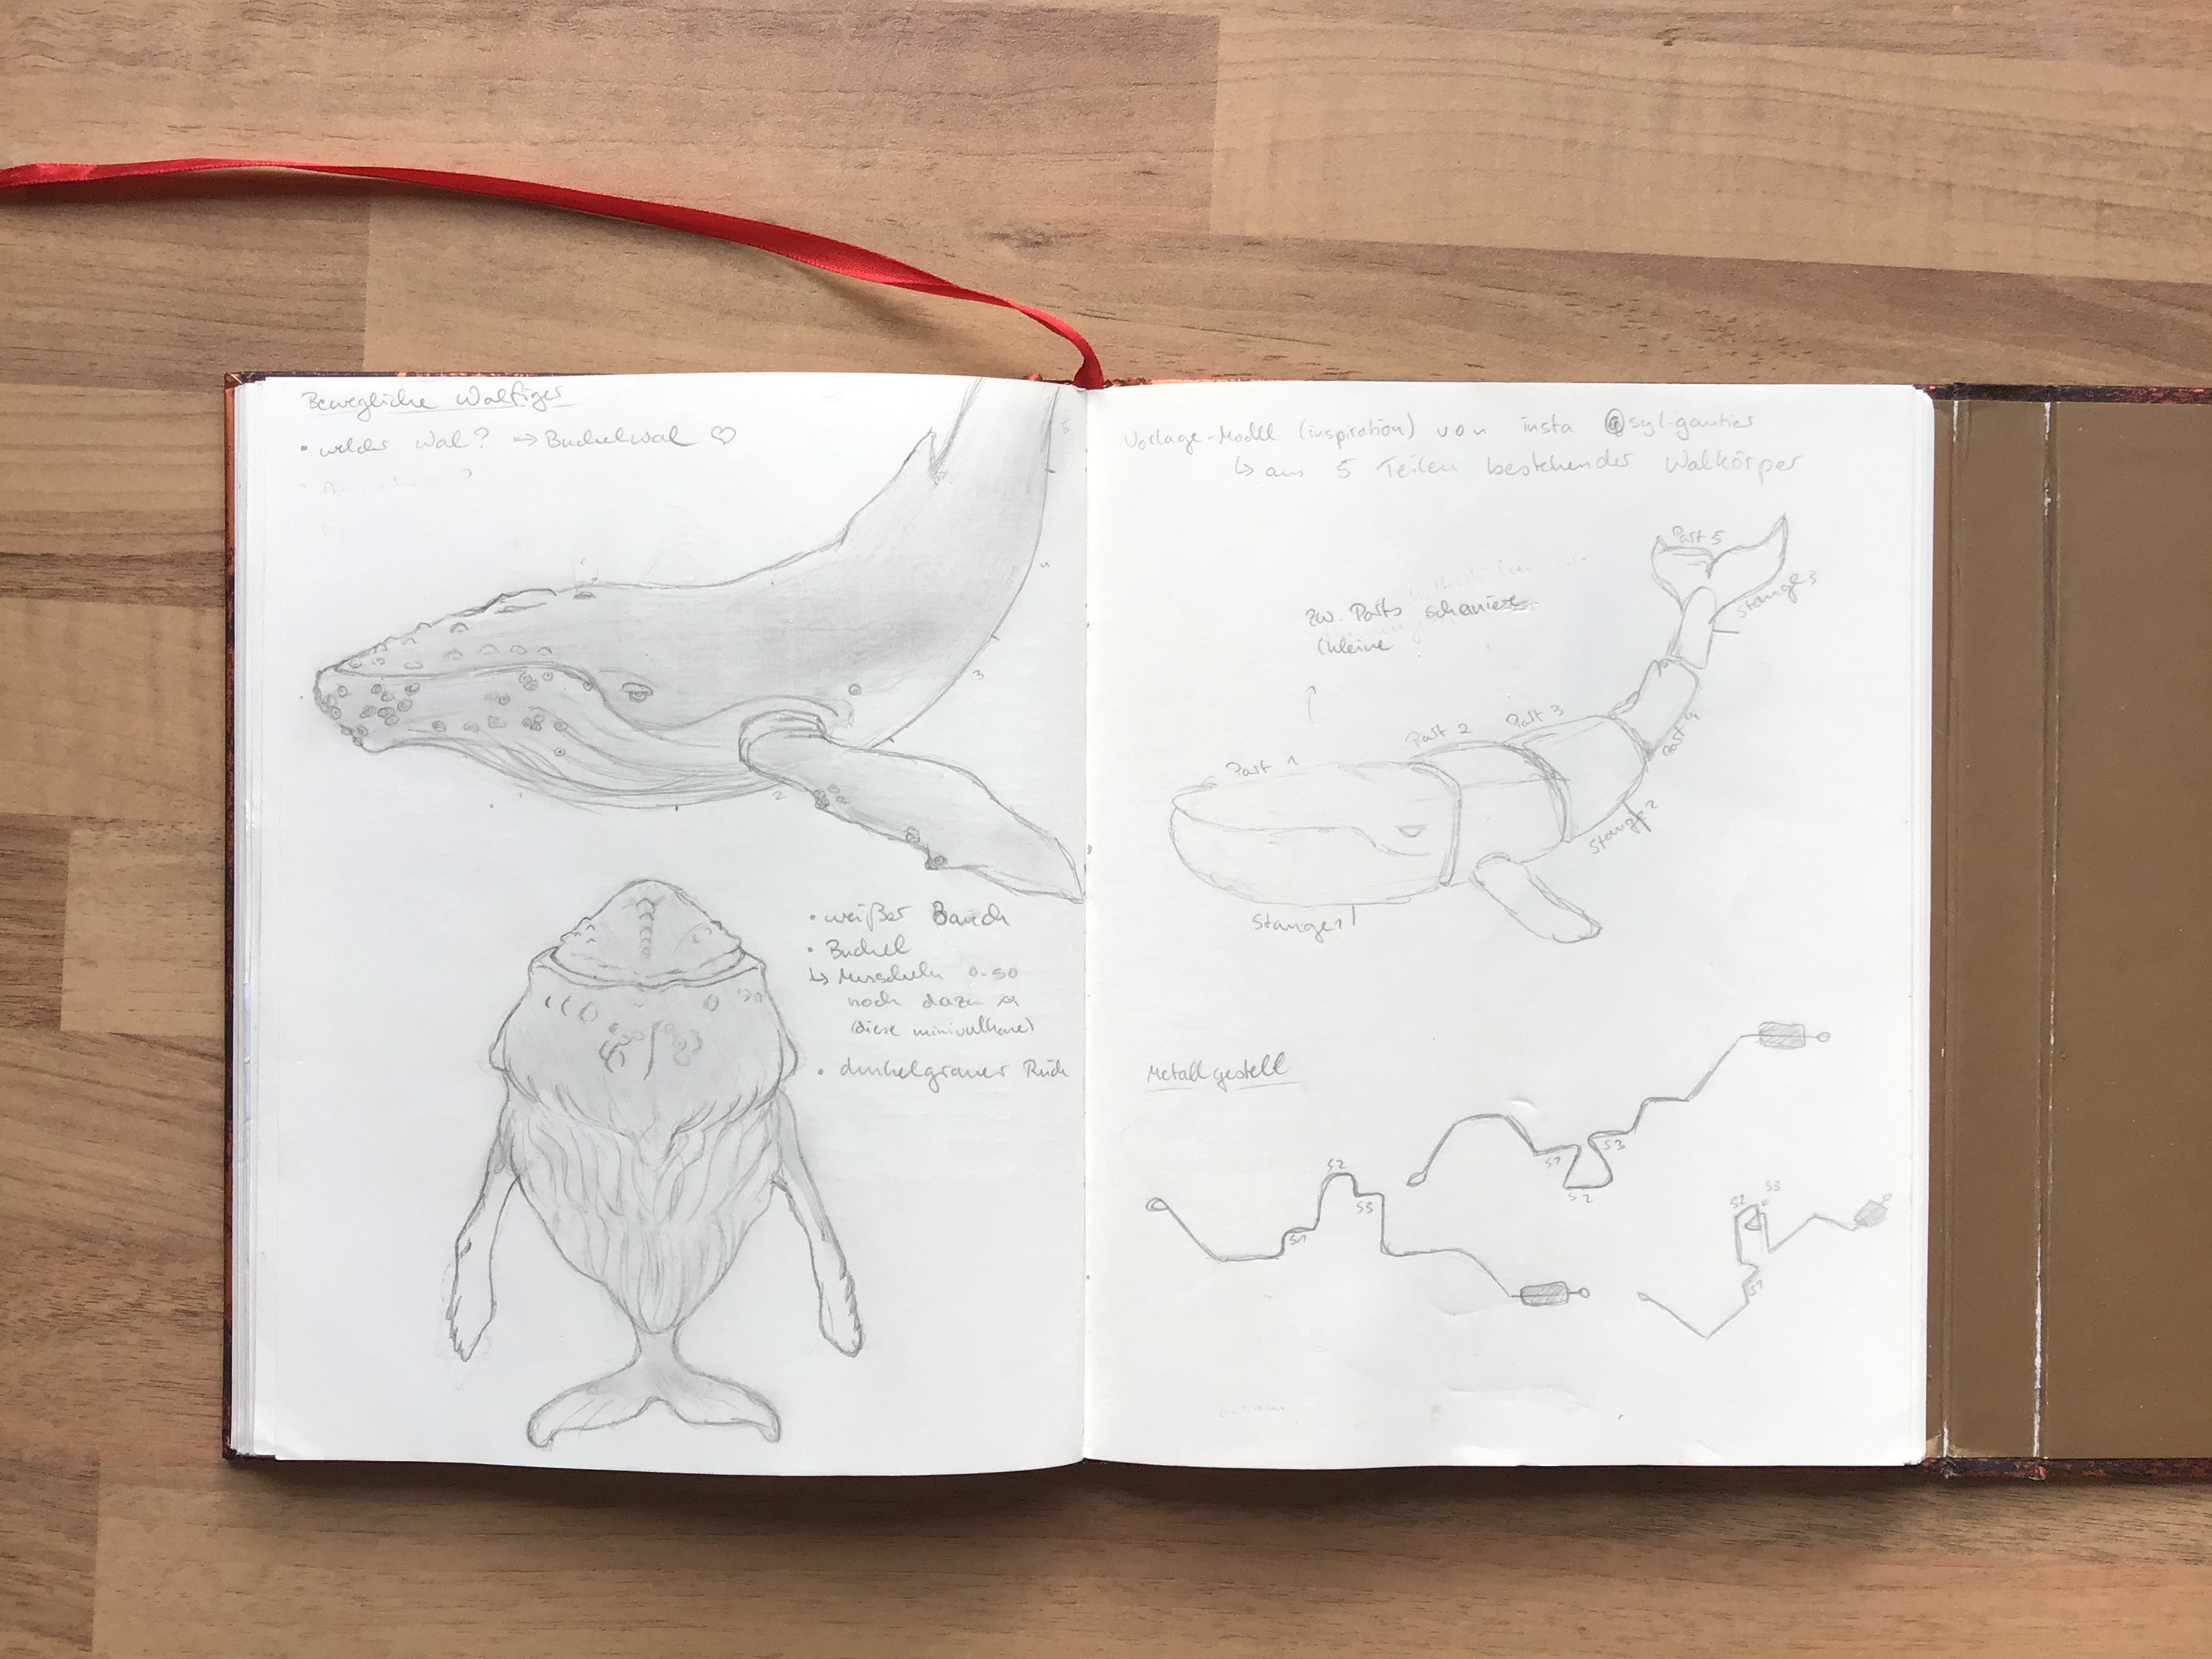 Bewegliche Walfigur
• welcher Wal? → Buckelwal ♡
5
4
3
2
1
• weißer Bauch
• Buckel
↳ Muscheln o. so
noch dazu
(diese minivulkane)
• dunkelgrauer Rück
Vorlage-Modell (inspiration) von insta @syl.gautier
↳ aus 5 Teilen bestehender Walkörper
zw. Parts scharniere
(kleine
Part 5
Stange 3
Part 4
Part 3
Part 2
Part 1
Stange 2
Stange 1
Metallgestell
S1
S2
S3
S1
S2
S3
S2
S3
S1